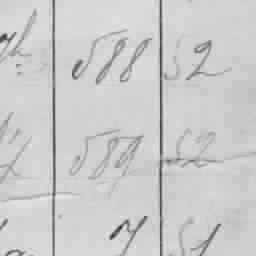 588 52
589 52
7 51